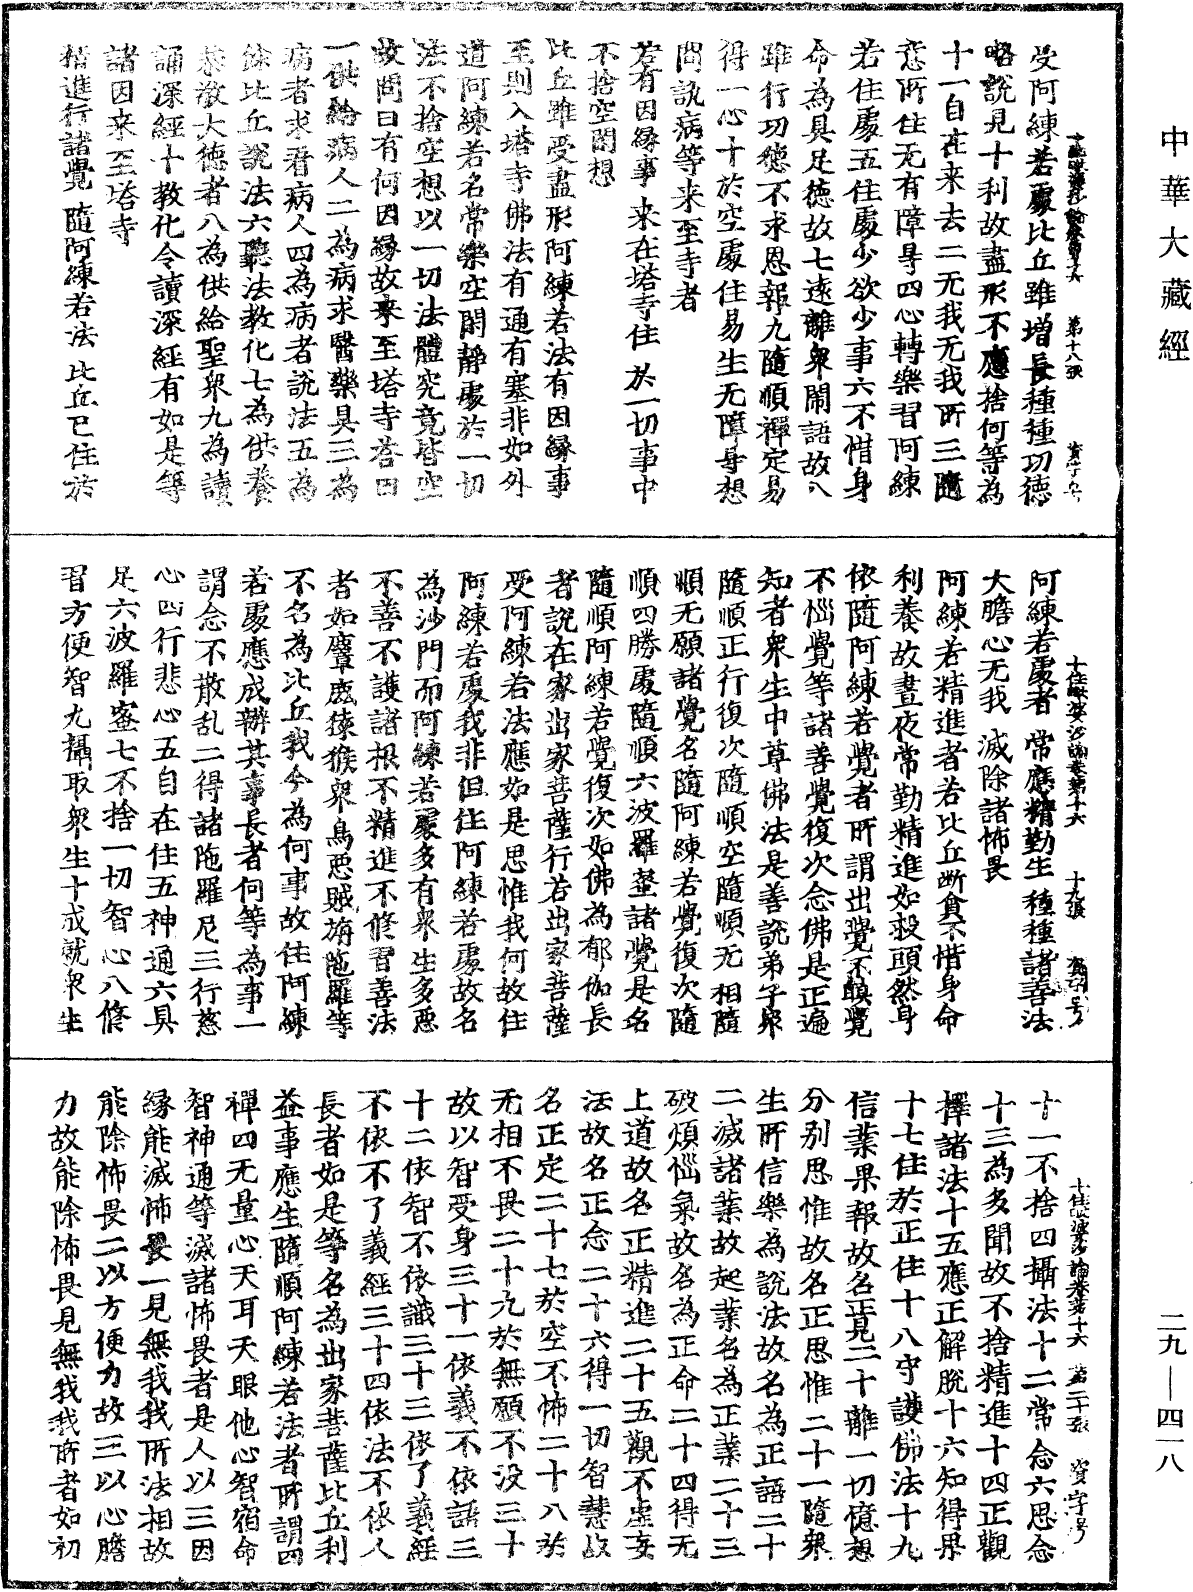 中華大藏經
十住毗婆沙論卷第十六 第十八張 資字号
受阿練若處比丘雖增長種種功德
略說見十利故盡形不應捨何等為
十一自在来去二无我无我所三隨
意所住无有障㝵四心轉樂習阿練
若住處五住處少欲少事六不惜身
命為具足德故七遠離衆鬧語故八
雖行功德不求恩報九隨順禪定易
得一心十於空處住易生无障㝵想
問訊病等来至寺者
若有因緣事 来在塔寺住 於一切事中
不捨空閑想
比丘雖受盡形阿練若法有因緣事
至則入塔寺佛法有通有塞非如外
道阿練若名常樂空閑靜處於一切
法不捨空想以一切法體究竟皆空
故問曰有何因緣故来至塔寺荅曰
一供給病人二為病求醫藥具三為
病者求看病人四為病者說法五為
餘比丘說法六聽法教化七為供養
恭敬大德者八為供給聖衆九為讀
誦深經十教化令讀深經有如是等
諸因来至塔寺
精進行諸覺 隨阿練若法 比丘已住於
十住毗婆沙論卷第十六 十九張 資字号
阿練若處者 常應精勤生 種種諸善法
大膽心无我 滅除諸怖畏
阿練若精進者若比丘断貪不惜身命
利養故晝夜常勤精進如救頭然身
依隨阿練若覺者所謂出覺不瞋覺
不惱覺等諸善覺復次念佛是正遍
知者衆生中尊佛法是善說弟子衆
隨順正行復次隨順空隨順无相隨
順无願諸覺名隨阿練若覺復次隨
順四勝處隨順六波羅蜜諸覺是名
隨順阿練若覺復次如佛為郁伽長
者說在家出家菩薩行若出家菩薩
受阿練若法應如是思惟我何故住
阿練若處我非但住阿練若處故名
為沙門而阿練若處多有衆生多惡
不善不護諸根不精進不修習善法
者如麞鹿猿猴衆鳥惡賊旃陁羅等
不名為比丘我今為何事故住阿練
若處應成辦其事長者何等為事一
謂念不散乱二得諸陁羅尼三行慈
心四行悲心五自在住五神通六具
足六波羅蜜七不捨一切智心八修
習方便智九攝取衆生十成就衆生
十住毗婆沙論卷第十六 第二十張 資字号
十一不捨四攝法十二常念六思念
十三為多聞故不捨精進十四正觀
擇諸法十五應正解脫十六知得果
十七住於正住十八守護佛法十九
信業果報故名正見二十離一切憶想
分別思惟故名正思惟二十一隨衆
生所信樂為說法故名為正語二十
二滅諸業故起業名為正業二十三
破煩惱氣故名為正命二十四得无
上道故名正精進二十五觀不虛妄
法故名正念二十六得一切智慧故
名正定二十七於空不怖二十八於
无相不畏二十九於無願不沒三十
故以智受身三十一依義不依語三
十二依智不依識三十三依了義經
不依不了義經三十四依法不依人
長者如是等名為出家菩薩比丘利
益事應生隨順阿練若法者所謂四
禪四无量心天耳天眼他心智宿命
智神通等滅諸怖畏者是人以三因
緣能滅怖畏一見無我我所法相故
能除怖畏二以方便力故三以心膽
力故能除怖畏見無我我所者如初
二九—四一八